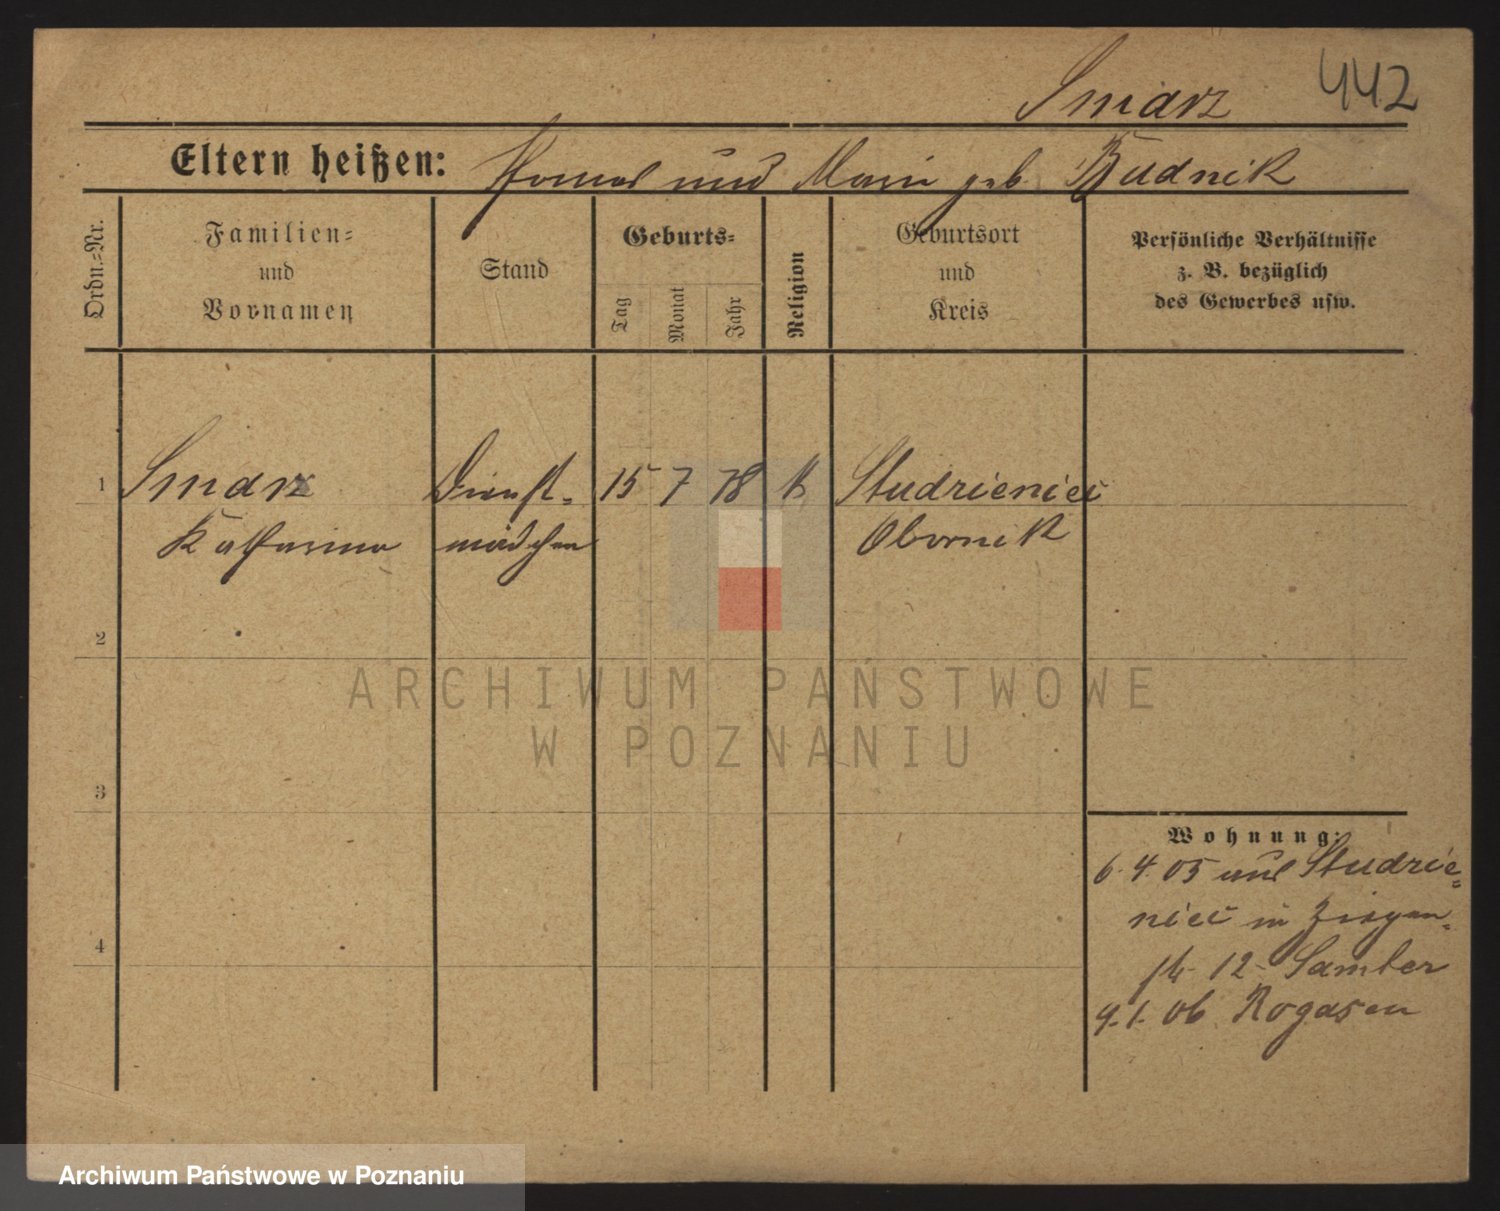 Smarz 442
Eltern heißen: Thomas und Marie geb. Budnik
Ordn.=Nr.
Familien=
und
Vornamen
Stand
Geburts=
Tag
Monat
Jahr
Religion
Geburtsort
und
Kreis
Persönliche Verhältnisse
z. B. bezüglich
des Gewerbes usw.
1 Smarz Dienst= 15 7 78 k Studzieniec
Katharina mädchen Obornik
2
3
4
Wohnung:
6.4.05 aus Studzie=
niec in Ziegen=
str. 12 Samter
9.1.06 Rogasen
ARCHIWUM PAŃSTWOWE
W POZNANIU
Archiwum Państwowe w Poznaniu